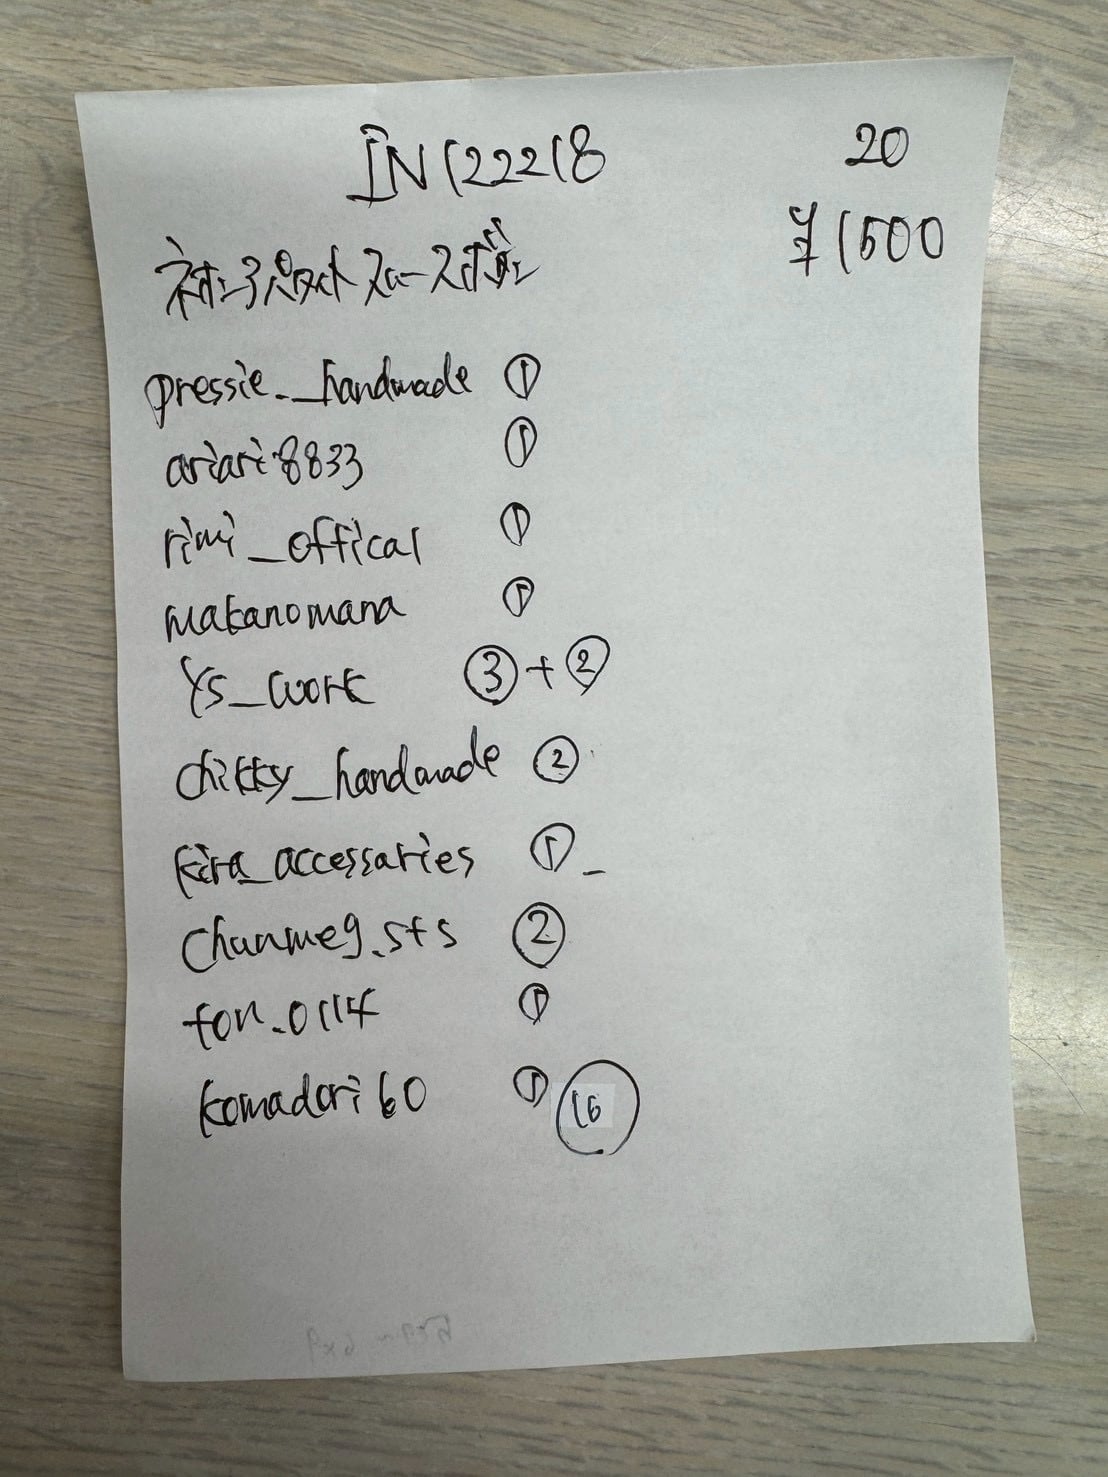 IN122218 20
¥1500
pressie._handmade ①
ariari8833 ①
rimi_offical ①
makanomana ①
Ys_work ③+②
chikky_handmade ②
kira_accessaries ①
chunmeg.sts ②
ton.0114 ①
komadori60 ① ⑯